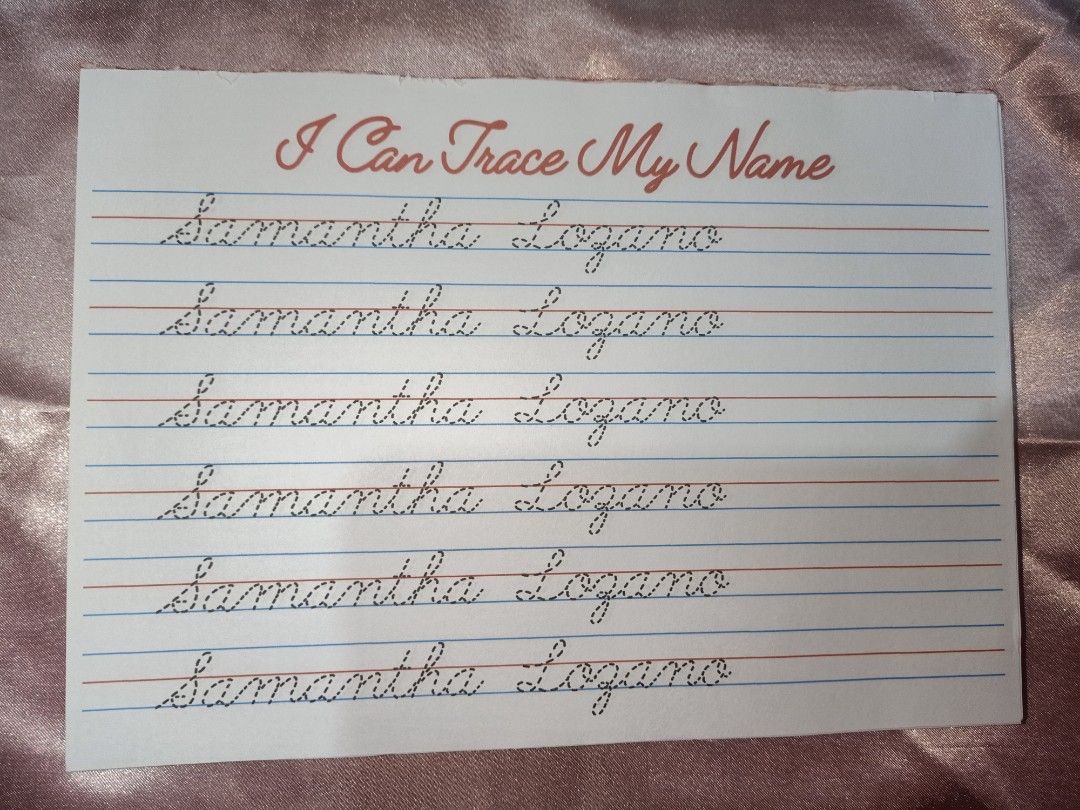 I Can Trace My Name
Samantha Lozano
Samantha Lozano
Samantha Lozano
Samantha Lozano
Samantha Lozano
Samantha Lozano